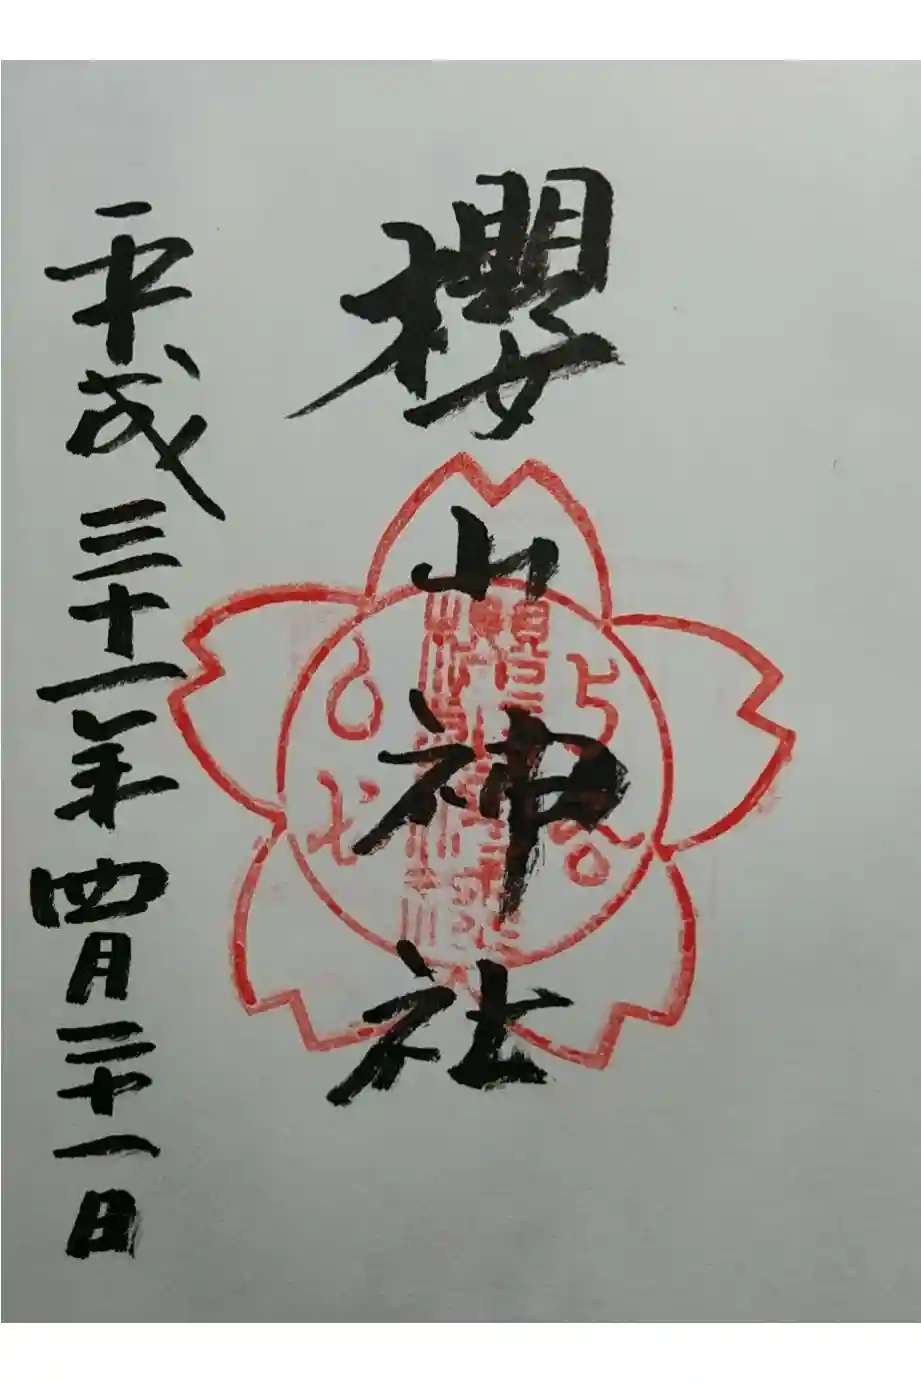 櫻山神社
平成三十一年四月二十一日